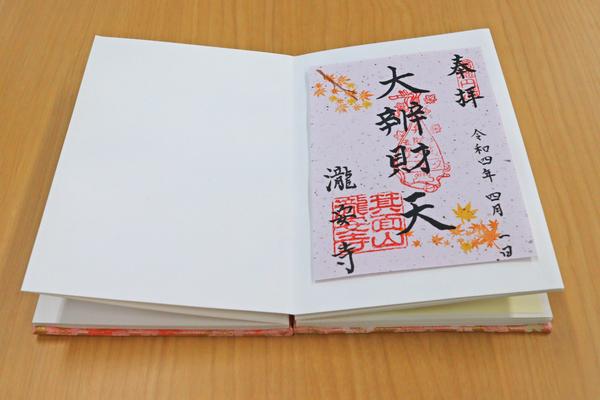 奉拝
大辨財天
令和四年 四月 一日
瀧安寺
箕面山
瀧安寺